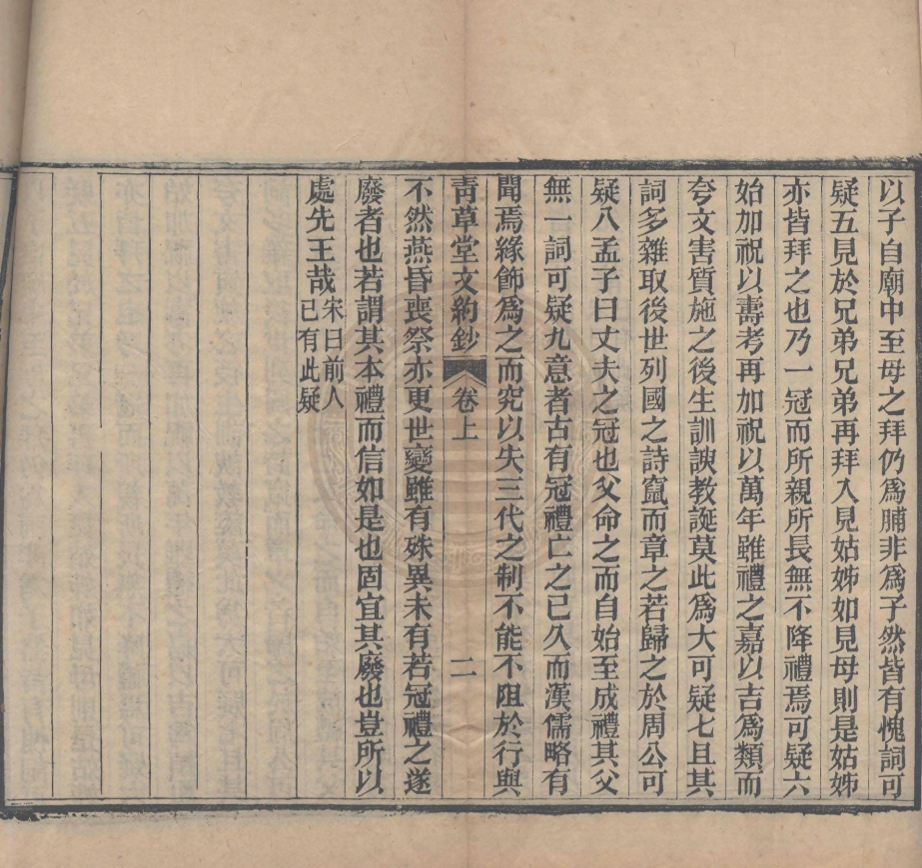 以子自廟中至母之拜仍爲脯非爲子然皆有愧詞可
疑五見於兄弟兄弟再拜入見姑姊如見母則是姑姊
亦皆拜之也乃一冠而所親所長無不降禮焉可疑六
始加祝以壽考再加祝以萬年雖禮之嘉以吉爲類而
夸文害質施之後生訓諛教誕莫此爲大可疑七且其
詞多雜取後世列國之詩竄而章之若歸之於周公可
疑八孟子曰丈夫之冠也父命之而自始至成禮其父
無一詞可疑九意者古有冠禮亡之已久而漢儒略有
聞焉緣飾爲之而究以失三代之制不能不阻於行與
靑草堂文約鈔 卷上 二
不然燕昏喪祭亦更世變雖有殊異未有若冠禮之遂
廢者也若謂其本禮而信如是也固宜其廢也豈所以
處先王哉宋日前人
已有此疑